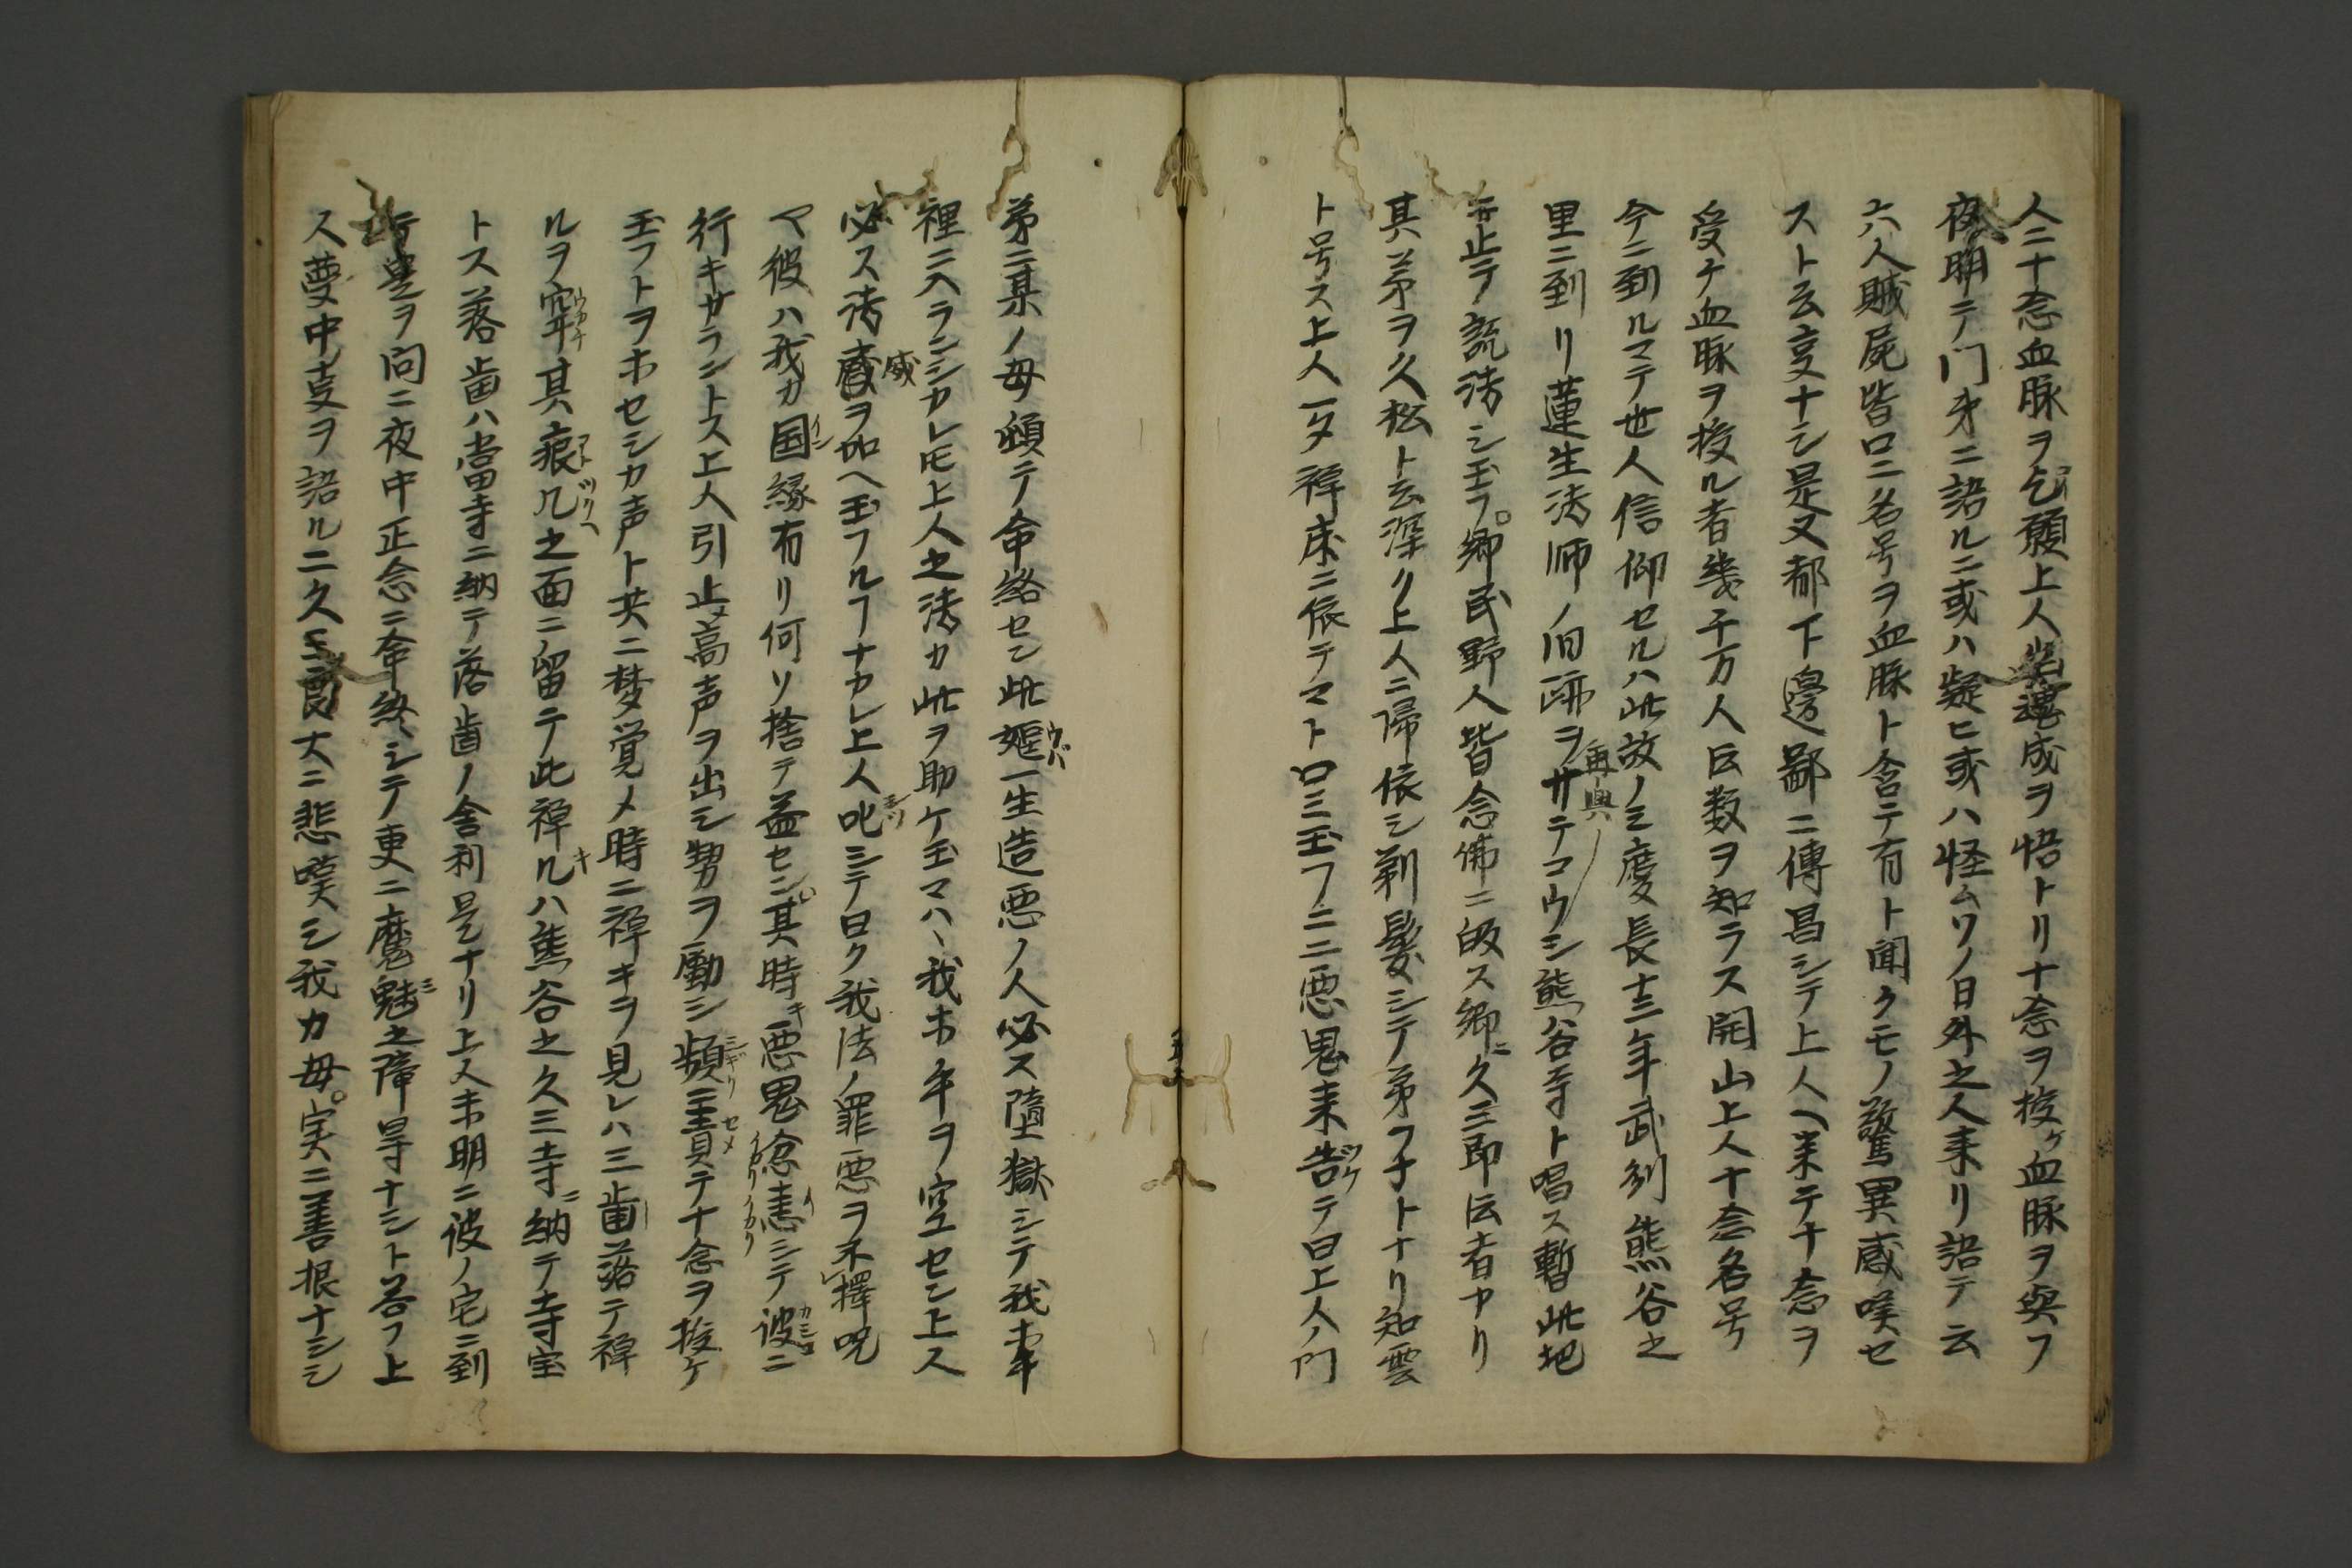 人ニ十念血脉ヲ乞願上人□遷成ヲ悟トリ十念ヲ授ケ血脉ヲ與フ
夜明テ門弟ニ語ルニ或ハ疑ヒ或ハ怪ムソノ日外之人来リ語テ云
六人賊屍皆口ニ名号ヲ血脉ト含テ有ト聞クモノ驚異感嘆セ
スト云叓ナシ是又都下邊鄙ニ傳昌シテ上人ヘ来テ十念ヲ
受ケ血脉ヲ授ル者幾千万人云数ヲ知ラス開山上人十念名号
今ニ到ルマテ世人信仰セルハ此故ノミ慶長十三年武列熊谷之
里ニ到リ蓮生法師ノ旧跡ヲサテコウシ熊谷寺ト唱ス暫此地
再興
ニ止テ説法シ玉フ郷民野人皆念佛ニ皈ス郷ニ久三郎云者アリ
其弟ヲ久松ト云深ク上人ニ帰依シ剃髪シテ弟子トナリ知雲
ト号ス上人一夕禅床ニ依テマトロミ玉フニ二悪鬼来告テ曰上人ノ門
弟ニ某ノ母頓テ命終セン此嫗一生造悪ノ人必ス墮獄シテ我車
裡ニ入ランシカレ𪜈上人之法力此ヲ助ケ玉マハヽ我ホ年ヲ空セン上人
必ス法威ヲ加ヘ玉フルヿナカレ上人叱シテ曰ク我法ノ罪悪ヲ不擇呪
マ彼ハ我カ国縁有リ何ソ捨テ益セン其時キ悪鬼忿恚シテ彼ニ
行キサラントス上人引止メ高声ヲ出シ勢ヲ動シ頻ニ責テ十念ヲ授ケ
玉フトヲホセシカ声ト共ニ梦覚メ時ニ禅キヲ見レハ三歯落テ禅
几ヲ穿其痕几之面ニ留テ此禅几ハ熊谷之久三寺ニ納テ寺宝
トス落歯ハ當寺ニ納テ落歯ノ舎利是ナリ上人未明ニ彼ノ宅ニ到
行□ヲ问ニ夜中正念ニ命終シテ更ニ魔魅之障㝵ナシト答フ上
ス夢中叓ヲ語ルニ久三郎大ニ悲嘆シ我カ母実ニ善根ナシシ